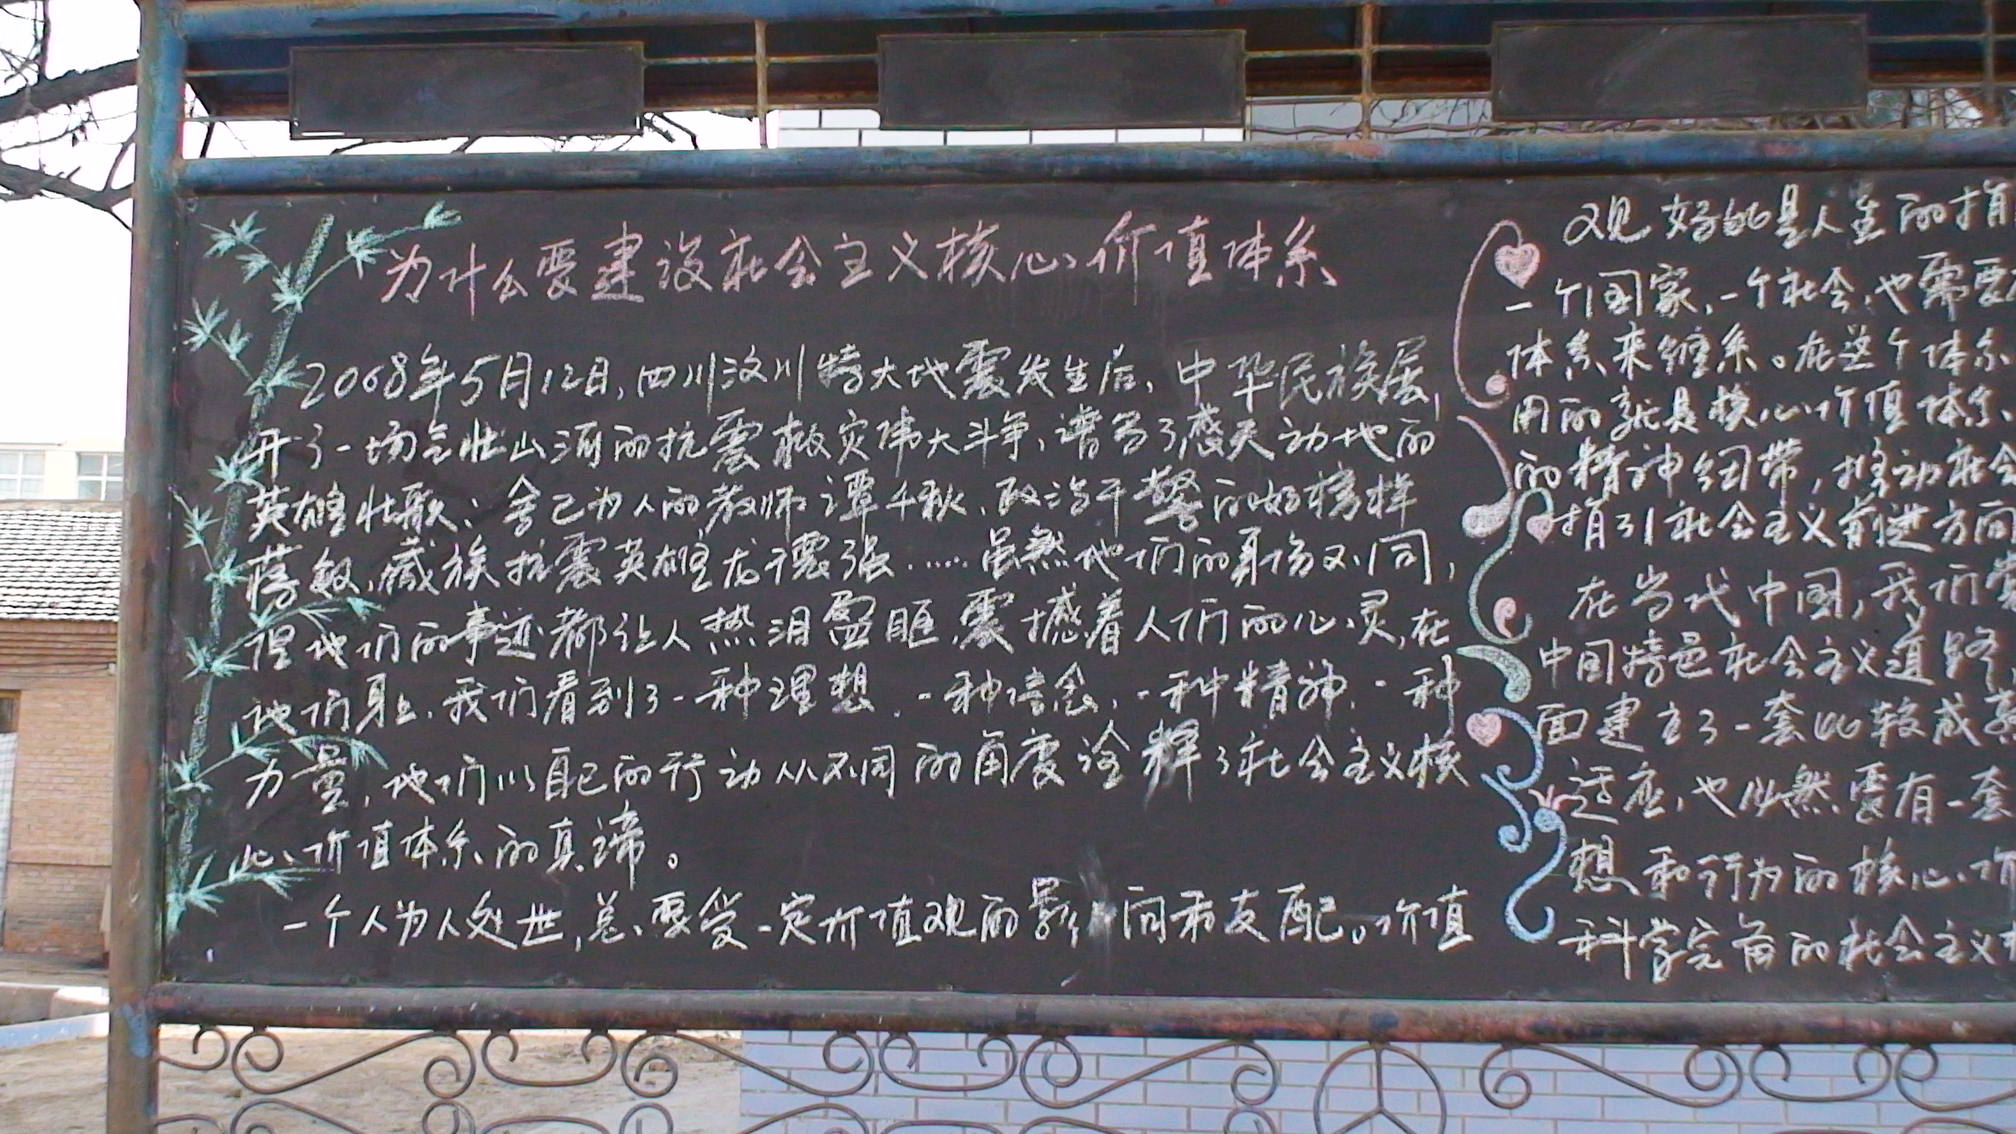 为什么要建设社会主义核心价值体系
2008年5月12日,四川汶川特大地震发生后,中华民族展
开了一场气壮山河的抗震救灾伟大斗争,谱写了感天动地的
英雄壮歌:舍己为人的教师谭千秋,政治干警的好榜样
蒋敏,藏族抗震英雄龙德强……虽然他们的身份不同,
但他们的事迹都让人热泪盈眶,震撼着人们的心灵,在
他们身上,我们看到了一种理想,一种信念,一种精神,一种
力量,他们以自己的行动从不同的角度诠释了社会主义核
心价值体系的真谛。
一个人为人处世,总要受一定价值观的影响和支配。价值
观好的是人生的指
一个国家,一个社会,也需要
体系来维系。在这个体系
用的就是核心价值体系
的精神纽带,推动社会
指引社会主义前进方向
在当代中国,我们
中国特色社会主义道路
面建立了一套比较成
适应,也必然要有一套
想和行为的核心价
科学完备的社会主义